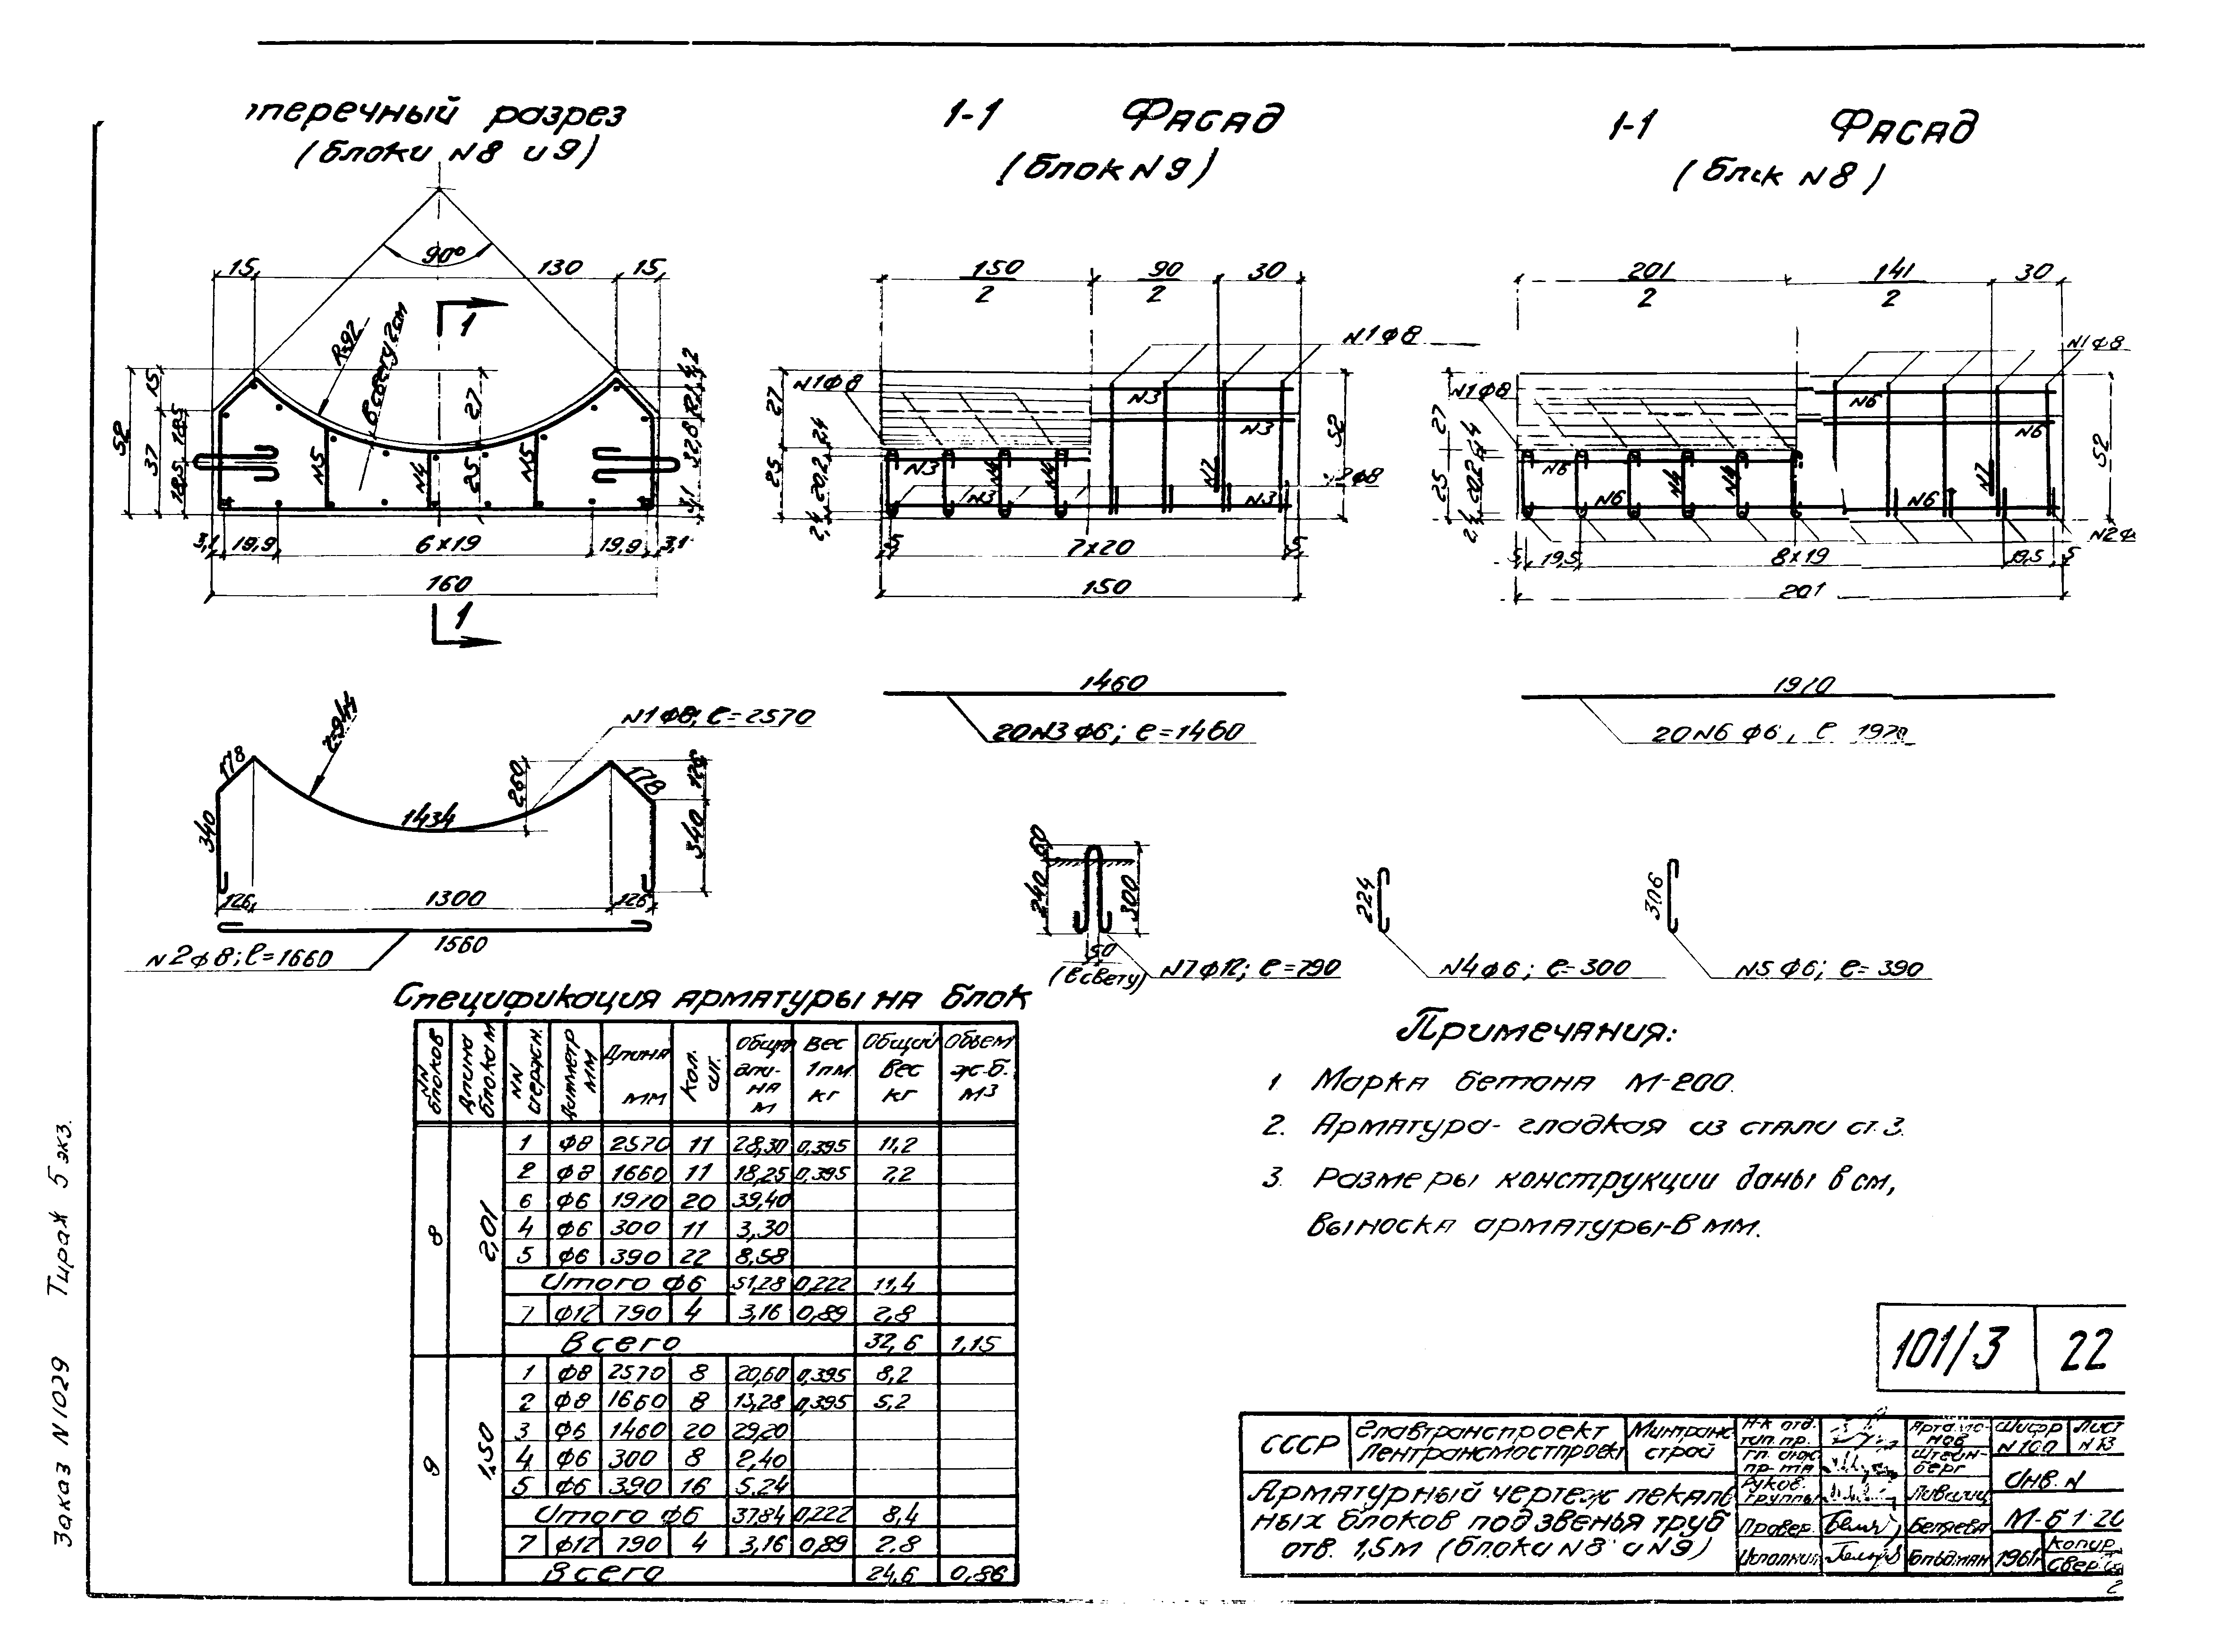 перечный разрез
(блоки N8 и 9)
1-1 Фасад
(блок N9)
1-1 Фасад
(блок N8)
90°
15 130 15
R=92
в свету 2см
1
15
52
37
18,5
18,5
27
25
N5
N4
N5
32,8
3,1
3,1 19,9 6×19 19,9 3,1
160
1
150/2 90/2 30
N1ф8
N1ф8
27
25
2,4
20,2
2,4
N3
N3
N3
N3
N4
N4
N7
N3
52
2ф8
5 7×20 5
150
201/2 141/2 30
N1ф8
N1ф8
27
25
20,2
N6
N6
N6
N6
N6
N4
N4
N7
52
N2ф
5 19,5 8×19 19,5 5
201
1460
20N3ф6; ℓ=1460
1970
20N6 ф6, ℓ 1970
N1ф8; ℓ=2570
178
r=944
260
178
126
340
340
1434
126 1300 126
1560
N2ф8; ℓ=1660
60
240
300
50
(в свету)
N7ф12; ℓ=790
224
N4ф6; ℓ=300
306
N5ф6; ℓ=390
Спецификация арматуры на блок
NN блоков | Длина блока м | NN стержн. | Диаметр мм | Длина мм | Кол. шт. | Общая длина м | Вес 1пм кг | Общий вес кг | Объем ж-б. м3
8 2,01
1 ф8 2570 11 28,30 0,395 11,2
2 ф8 1660 11 18,25 0,395 7,2
6 ф6 1970 20 39,40
4 ф6 300 11 3,30
5 ф6 390 22 8,58
Итого ф6 51,28 0,222 11,4
7 ф12 790 4 3,16 0,89 2,8
Всего 32,6 1,15
9 1,50
1 ф8 2570 8 20,60 0,395 8,2
2 ф8 1660 8 13,28 0,395 5,2
3 ф6 1460 20 29,20
4 ф6 300 8 2,40
5 ф6 390 16 5,24
Итого ф6 37,84 0,222 8,4
7 ф12 790 4 3,16 0,89 2,8
Всего 24,6 0,86
Примечания:
1 Марка бетона М-200.
2. Арматура- гладкая из стали ст.3.
3. Размеры конструкции даны в см,
выноска арматуры-в мм.
101/3 22
СССР
Главтранспроект
Лентрансмостпроект
Минтранс
строй
Арматурный чертеж лекаль
ных блоков под звенья труб
отв. 1,5м (блоки N8 и N9)
Н-к отд.
тип. пр.
Артамо-
нов
Гл. инж.
пр-та
Штейн-
берг
Руков.
группы
Лившиц
Провер.
Беляева
Исполнил
Гольдман
Шифр
N 100
Лист
N 13
Инв. N
М-б 1:20
1961г
Копир.
Свер
Заказ N1029 Тираж 5 экз.